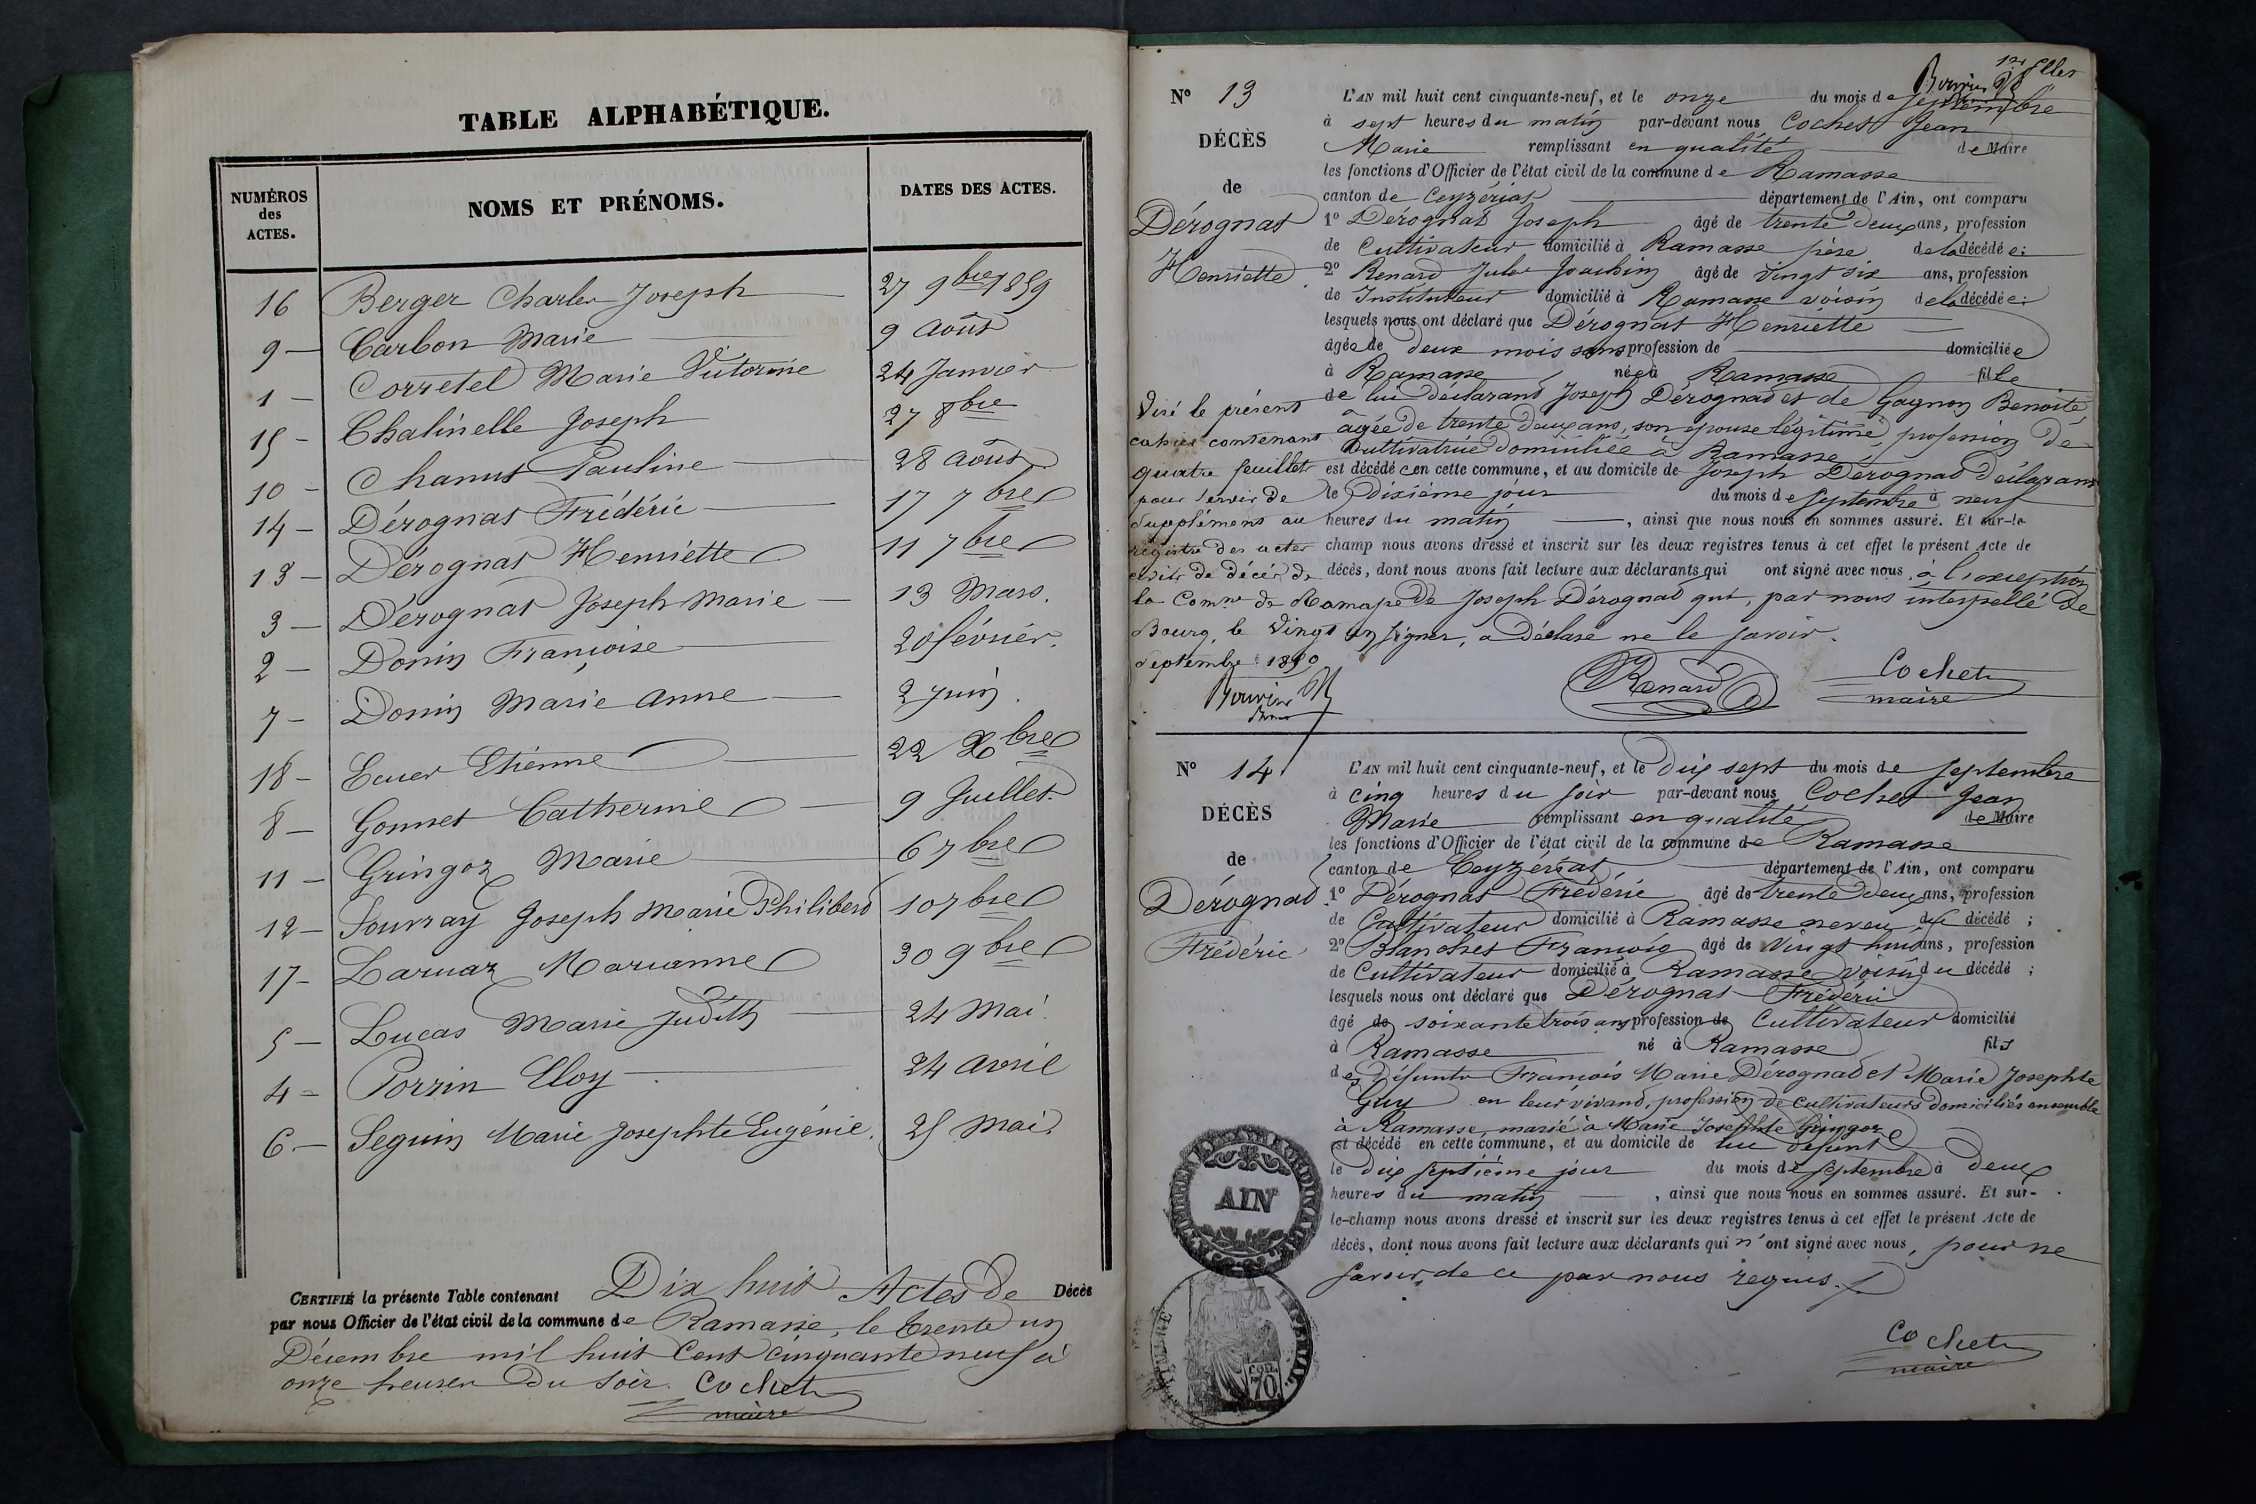 TABLE ALPHABÉTIQUE.
NUMÉROS des ACTES.
NOMS ET PRÉNOMS.
DATES DES ACTES.
16 Berger Charles Joseph 27 9bre 1859
9 — Carbon Marie 9 août
1 — Corretel Marie Victorine 24 Janvier
15 — Chalinelle Joseph 27 8bre
10 — Chanut Pauline 28 août
14 — Dérognat Frédéric 17 7bre
13 — Dérognat Henriette 11 7bre
3 — Dérognat Joseph Marie 13 Mars.
2 — Donin Françoise 20 février.
7 — Donin Marie Anne 2 Juin.
18 — Ecuer Etienne 22 Xbre
8 — Gonnet Catherine 9 Juillet.
11 — Gringoz Marie 6 7bre
12 — Jouvray Joseph Marie Philibert 10 7bre
17 — Laruaz Marianne 30 9bre
5 — Lucas Marie Judith 24 Mai.
4 — Porrin Eloy 24 avril
6 — Seguin Marie Josephte Eugénie. 25 Mai.
CERTIFIÉ la présente Table contenant Dix huit Actes de Décès
par nous Officier de l'état civil de la commune de Ramasse, le trente un
Décembre mil huit Cent cinquante neuf à
onze heures du soir. Cochet
maire
1er fllet
Bouvier
N° 13
DÉCÈS
de
Dérognat
Henriette.
L'AN mil huit cent cinquante-neuf, et le onze du mois de septembre
à sept heures du matin par-devant nous Cochet Jean
Marie remplissant en qualité de Maire
les fonctions d'Officier de l'état civil de la commune de Ramasse
canton de Ceyzériat département de l'Ain, ont comparu
1° Dérognat Joseph âgé de trente deux ans, profession
de Cultivateur domicilié à Ramasse père de la décédée;
2° Renard Jules Joachim âgé de vingt six ans, profession
de Instituteur domicilié à Ramasse voisin de la décédée;
lesquels nous ont déclaré que Dérognat Henriette
âgée de deux mois sans profession de domiciliée
à Ramasse née à Ramasse fille
de lui déclarant Joseph Dérognat et de Gagnon Benoite
âgée de trente deux ans, son épouse légitime, profession de
Cultivatrice domiciliée à Ramasse
est décédée en cette commune, et au domicile de Joseph Dérognat déclarant
le dixième jour du mois de septembre à neuf
heures du matin, ainsi que nous nous en sommes assuré. Et sur-le-
champ nous avons dressé et inscrit sur les deux registres tenus à cet effet le présent Acte de
décès, dont nous avons fait lecture aux déclarants qui ont signé avec nous, à l'exception
de Joseph Dérognat qui, par nous interpellé de
signer, a déclaré ne le savoir.
Renard
Cochet
maire
Visé le présent
cahier contenant
quatre feuillets
pour servir de
supplément au
registre des actes
civils de décès de
la Comne de Ramasse
Bourg, le vingt
septembre 1859
Bouvier
N° 14
DÉCÈS
de
Dérognat
Frédéric
L'AN mil huit cent cinquante-neuf, et le dix sept du mois de septembre
à cinq heures du soir par-devant nous Cochet Jean
Marie remplissant en qualité de Maire
les fonctions d'Officier de l'état civil de la commune de Ramasse
canton de Ceyzériat département de l'Ain, ont comparu
1° Dérognat Frédéric âgé de trente deux ans, profession
de Cultivateur domicilié à Ramasse neveu du décédé;
2° Blanchet François âgé de vingt huit ans, profession
de Cultivateur domicilié à Ramasse voisin du décédé;
lesquels nous ont déclaré que Dérognat Frédéric
âgé de soixante trois ans profession de Cultivateur domicilié
à Ramasse né à Ramasse fils
des défunts François Marie Dérognat et Marie Josephte
Guy en leur vivant, profession de cultivateurs domiciliés ensemble
à Ramasse, marié à Marie Josephte Gringoz
est décédé en cette commune, et au domicile de lui défunt
le dix septième jour du mois de septembre à deux
heures du matin, ainsi que nous nous en sommes assuré. Et sur-
le-champ nous avons dressé et inscrit sur les deux registres tenus à cet effet le présent Acte de
décès, dont nous avons fait lecture aux déclarants qui n'ont signé avec nous, pour ne
savoir, de ce par nous requis.
Cochet
maire
AIN
TIMBRE IMPERIAL
CEN. 70